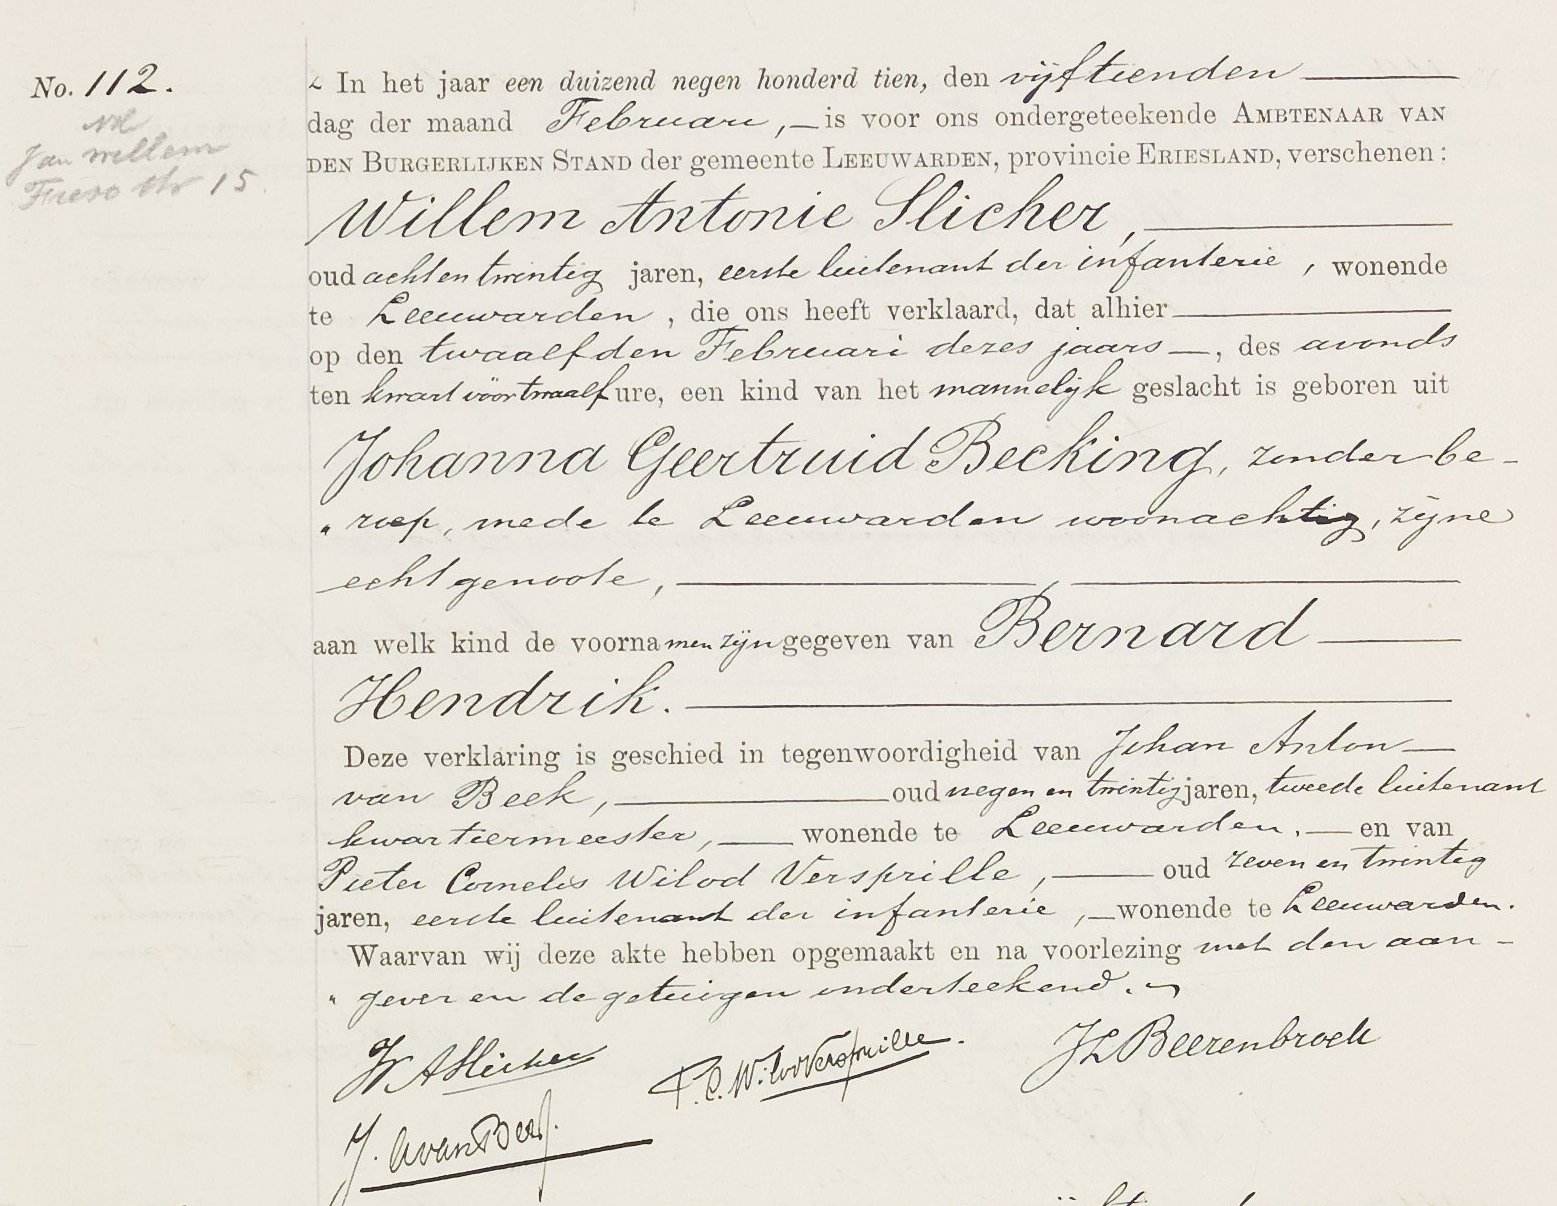 No. 112.
Jan Willem
Friso str 15.
In het jaar een duizend negen honderd tien, den vijftienden
dag der maand Februari, is voor ons ondergeteekende AMBTENAAR VAN
DEN BURGERLIJKEN STAND der gemeente LEEUWARDEN, provincie FRIESLAND, verschenen:
Willem Antonie Slicher,
oud acht en twintig jaren, eerste luitenant der infanterie, wonende
te Leeuwarden, die ons heeft verklaard, dat alhier
op den twaalfden Februari dezes jaars, des avonds
ten kwart vóór twaalf ure, een kind van het mannelijk geslacht is geboren uit
Johanna Geertruid Becking, zonder be-
" roep, mede te Leeuwarden woonachtig, zijne
echtgenoote,
aan welk kind de voornamen zijn gegeven van Bernard
Hendrik.
Deze verklaring is geschied in tegenwoordigheid van Johan Anton
van Beek, oud negen en twintig jaren, tweede luitenant
kwartiermeester, wonende te Leeuwarden. en van
Pieter Cornelis Wilod Versprille, oud zeven en twintig
jaren, eerste luitenant der infanterie, wonende te Leeuwarden.
Waarvan wij deze akte hebben opgemaakt en na voorlezing met den aan-
" gever en de getuigen onderteekend.
W A Slicher P. C. Wilod Versprille. JL Beerenbroek
J. A van Beek.